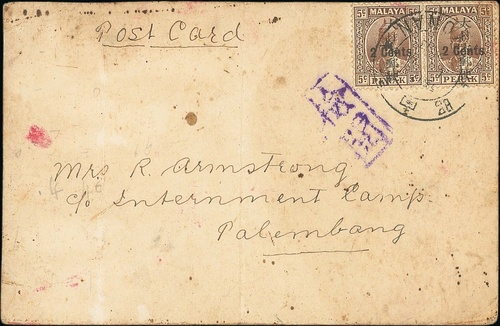 Post Card
5¢ MALAYA 5¢
2 Cents
5¢ PERAK 5¢
5¢ MALAYA 5¢
2 Cents
5¢ PERAK 5¢
Mrs R. Armstrong
c/o Internment Camp.
Palembang